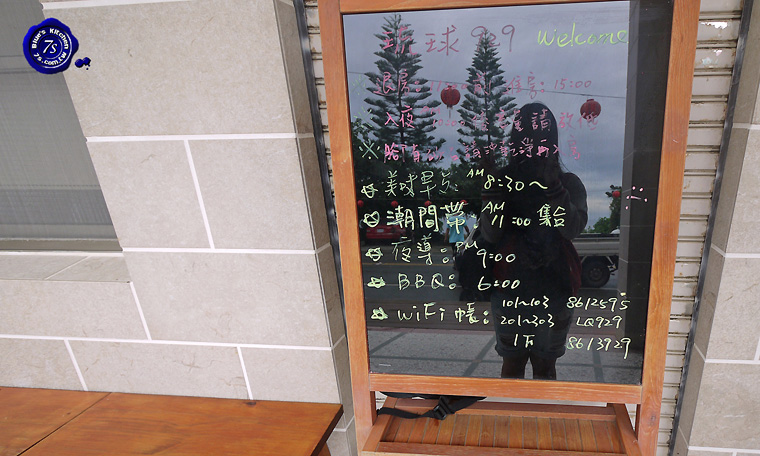 Blue's Kitchen
7s
7s.com.tw
琉球929 Welcome
退房: 房: 15:00
入夜 請放低
※
美味早 AM 8:30~
潮間帶 AM 11:00 集合
夜導: PM 9:00
BBQ: 6:00
WiFi 帳: 101~103 8612595
201~303 LQ929
1F 8613929